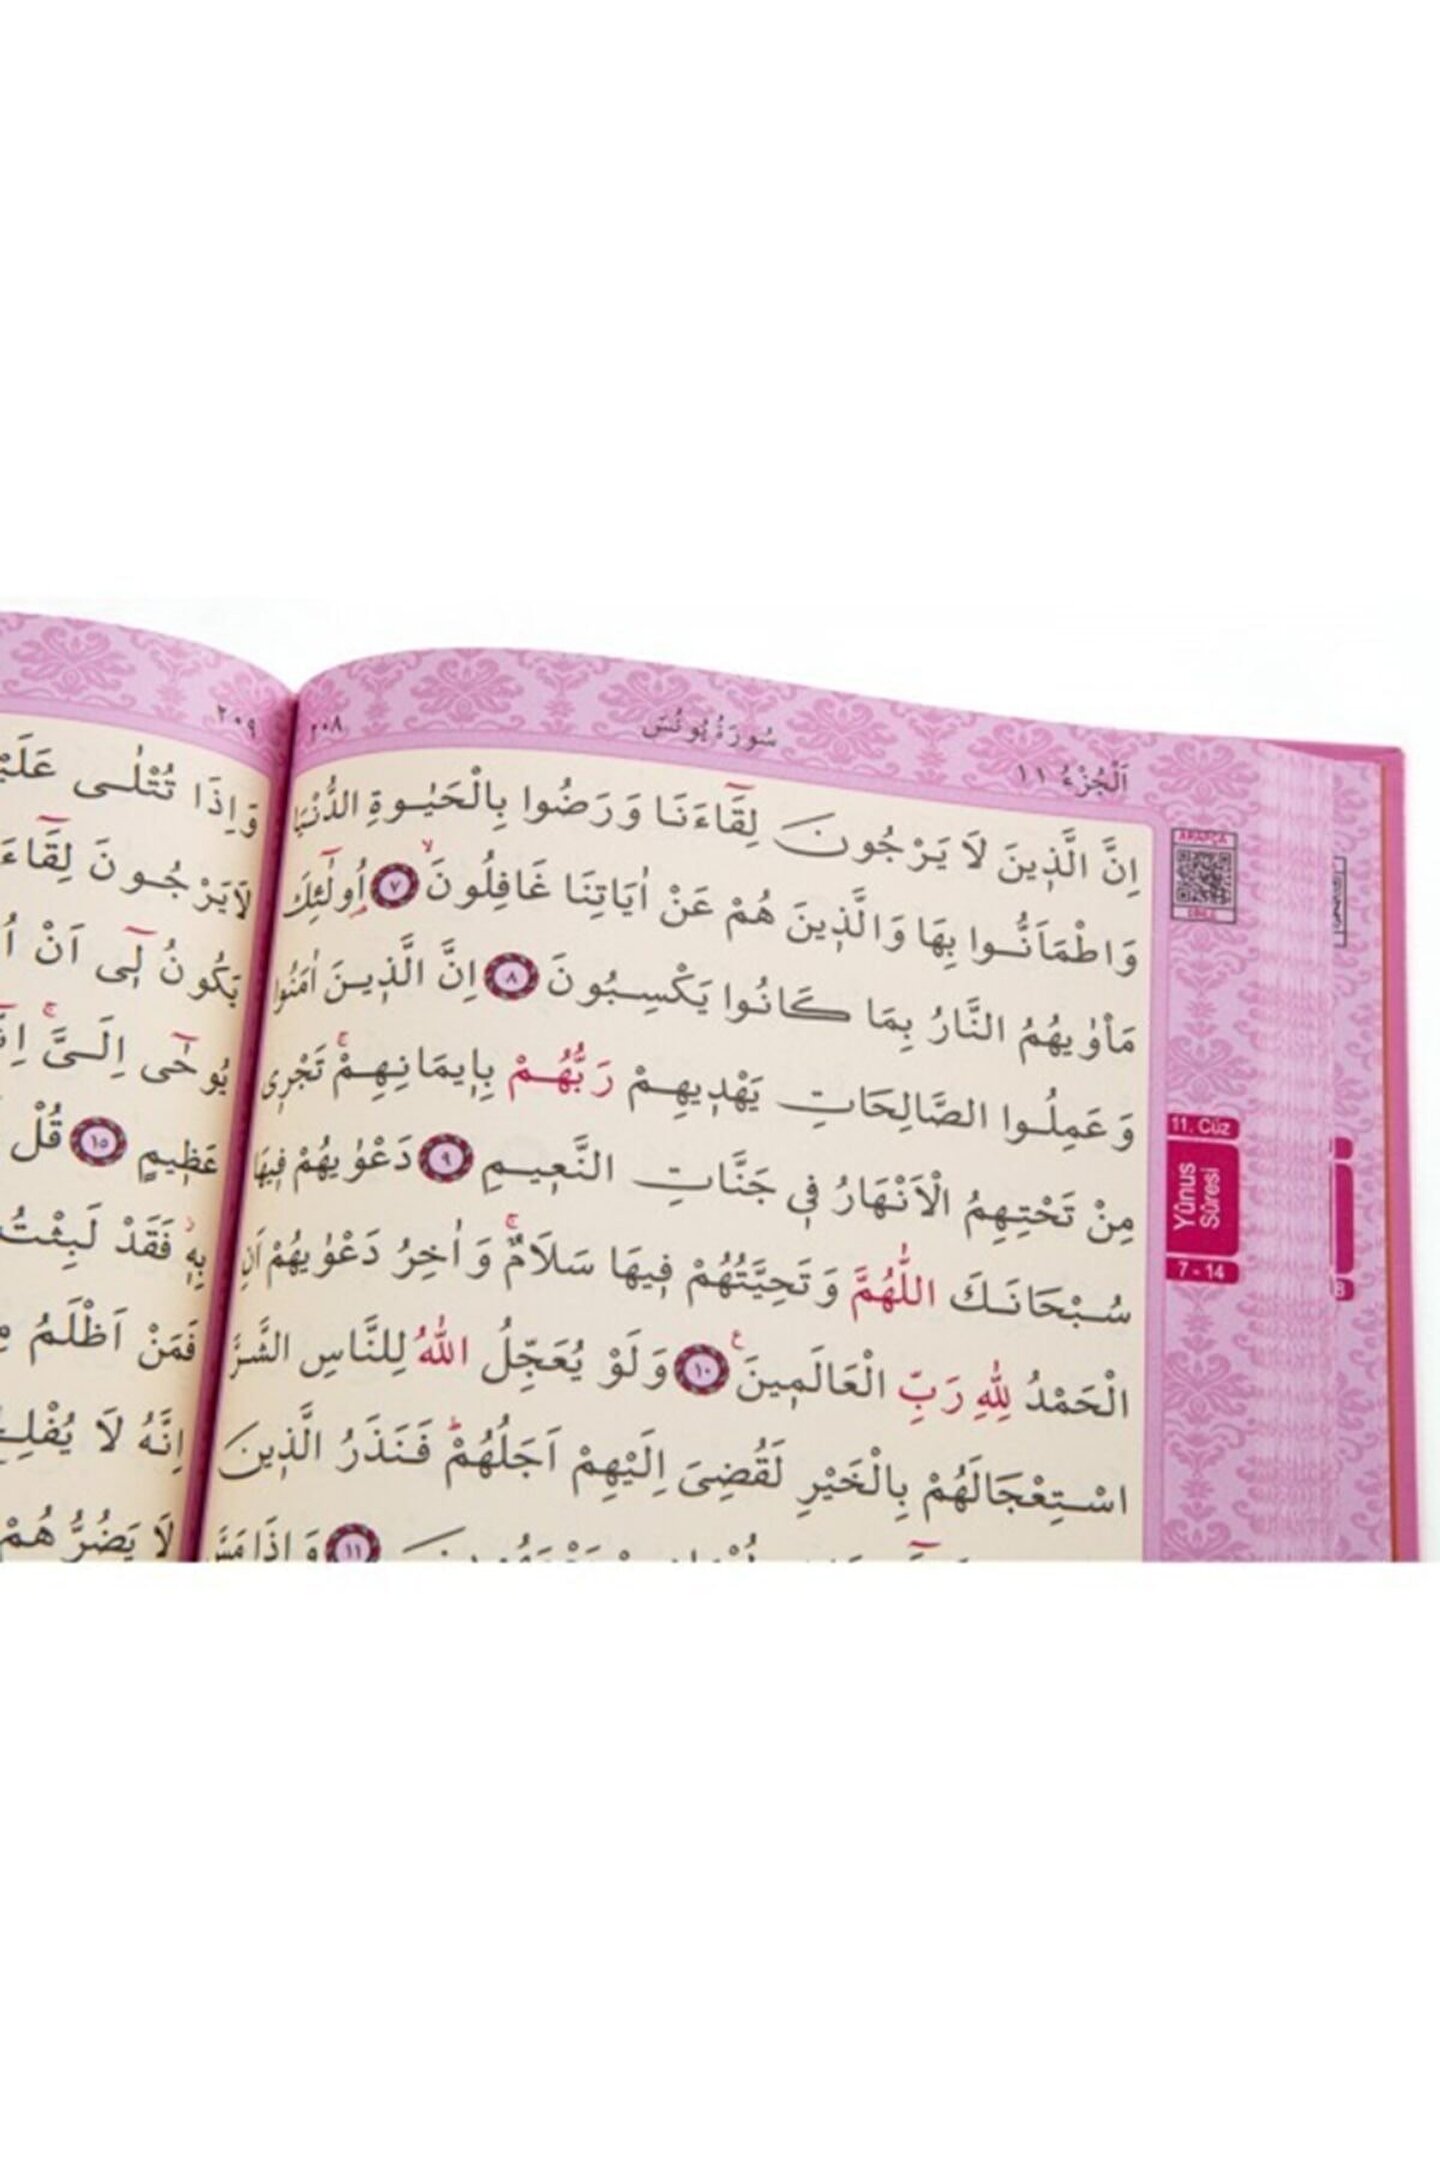 ٢٠٨
سُورَةُ يُونُسَ
اَلْجُزْءُ ١١
اِنَّ الَّذٖينَ لَا يَرْجُونَ لِقَٓاءَنَا وَرَضُوا بِالْحَيٰوةِ الدُّنْيَا
وَاطْمَاَنُّوا بِهَا وَالَّذٖينَ هُمْ عَنْ اٰيَاتِنَا غَافِلُونَۙ ٧ اُو۬لٰٓئِكَ
مَأْوٰيهُمُ النَّارُ بِمَا كَانُوا يَكْسِبُونَ ٨ اِنَّ الَّذٖينَ اٰمَنُوا
وَعَمِلُوا الصَّالِحَاتِ يَهْدٖيهِمْ رَبُّهُمْ بِاٖيمَانِهِمْۚ تَجْرٖى
مِنْ تَحْتِهِمُ الْاَنْهَارُ فٖى جَنَّاتِ النَّعٖيمِ ٩ دَعْوٰيهُمْ فٖيهَا
سُبْحَانَكَ اللّٰهُمَّ وَتَحِيَّتُهُمْ فٖيهَا سَلَامٌۚ وَاٰخِرُ دَعْوٰيهُمْ اَنِ
الْحَمْدُ لِلّٰهِ رَبِّ الْعَالَمٖينَࣖ ١٠ وَلَوْ يُعَجِّلُ اللّٰهُ لِلنَّاسِ الشَّرَّ
اسْتِعْجَالَهُمْ بِالْخَيْرِ لَقُضِىَ اِلَيْهِمْ اَجَلُهُمْؕ فَنَذَرُ الَّذٖينَ
١١ وَاِذَا مَسَّ
ARAPÇA
11. Cüz
Yûnus
Sûresi
7 - 14
٢٠٩
وَاِذَا تُتْلٰى
لَا يَرْجُونَ
يَكُونُ لٖٓى اَنْ
يُوحٰٓى اِلَىَّۚ
عَظٖيمٍ ١٥ قُلْ
بِهٖؗ فَقَدْ لَبِثْتُ
فَمَنْ اَظْلَمُ
اِنَّهُ لَا
لَا يَضُرُّهُمْ